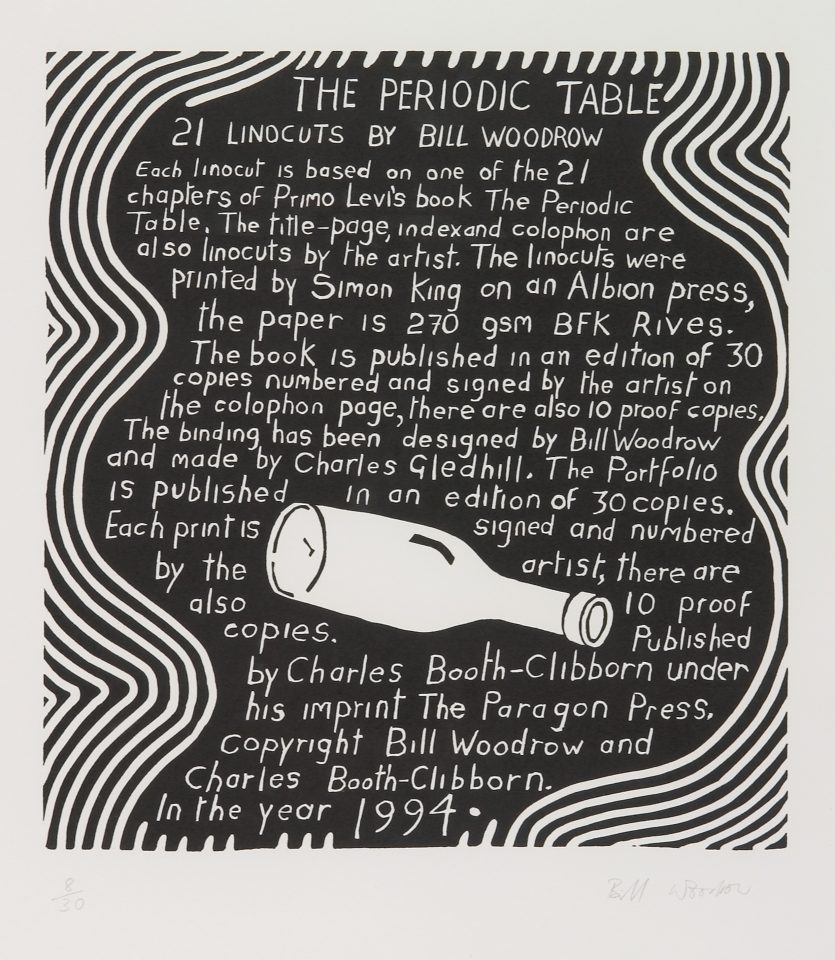 THE PERIODIC TABLE
21 LINOCUTS BY BILL WOODROW
Each linocut is based on one of the 21
chapters of Primo Levi's book The Periodic
Table. The title-page, index and colophon are
also linocuts by the artist. The linocuts were
printed by Simon King on an Albion press,
the paper is 270 gsm BFK Rives.
The book is published in an edition of 30
copies numbered and signed by the artist on
the colophon page, there are also 10 proof copies.
The binding has been designed by Bill Woodrow
and made by Charles Gledhill. The Portfolio
is published in an edition of 30 copies.
Each print is signed and numbered
by the artist, there are
also 10 proof
copies. Published
by Charles Booth-Clibborn under
his imprint The Paragon Press.
Copyright Bill Woodrow and
Charles Booth-Clibborn.
In the year 1994.
8/30 Bill Woodrow